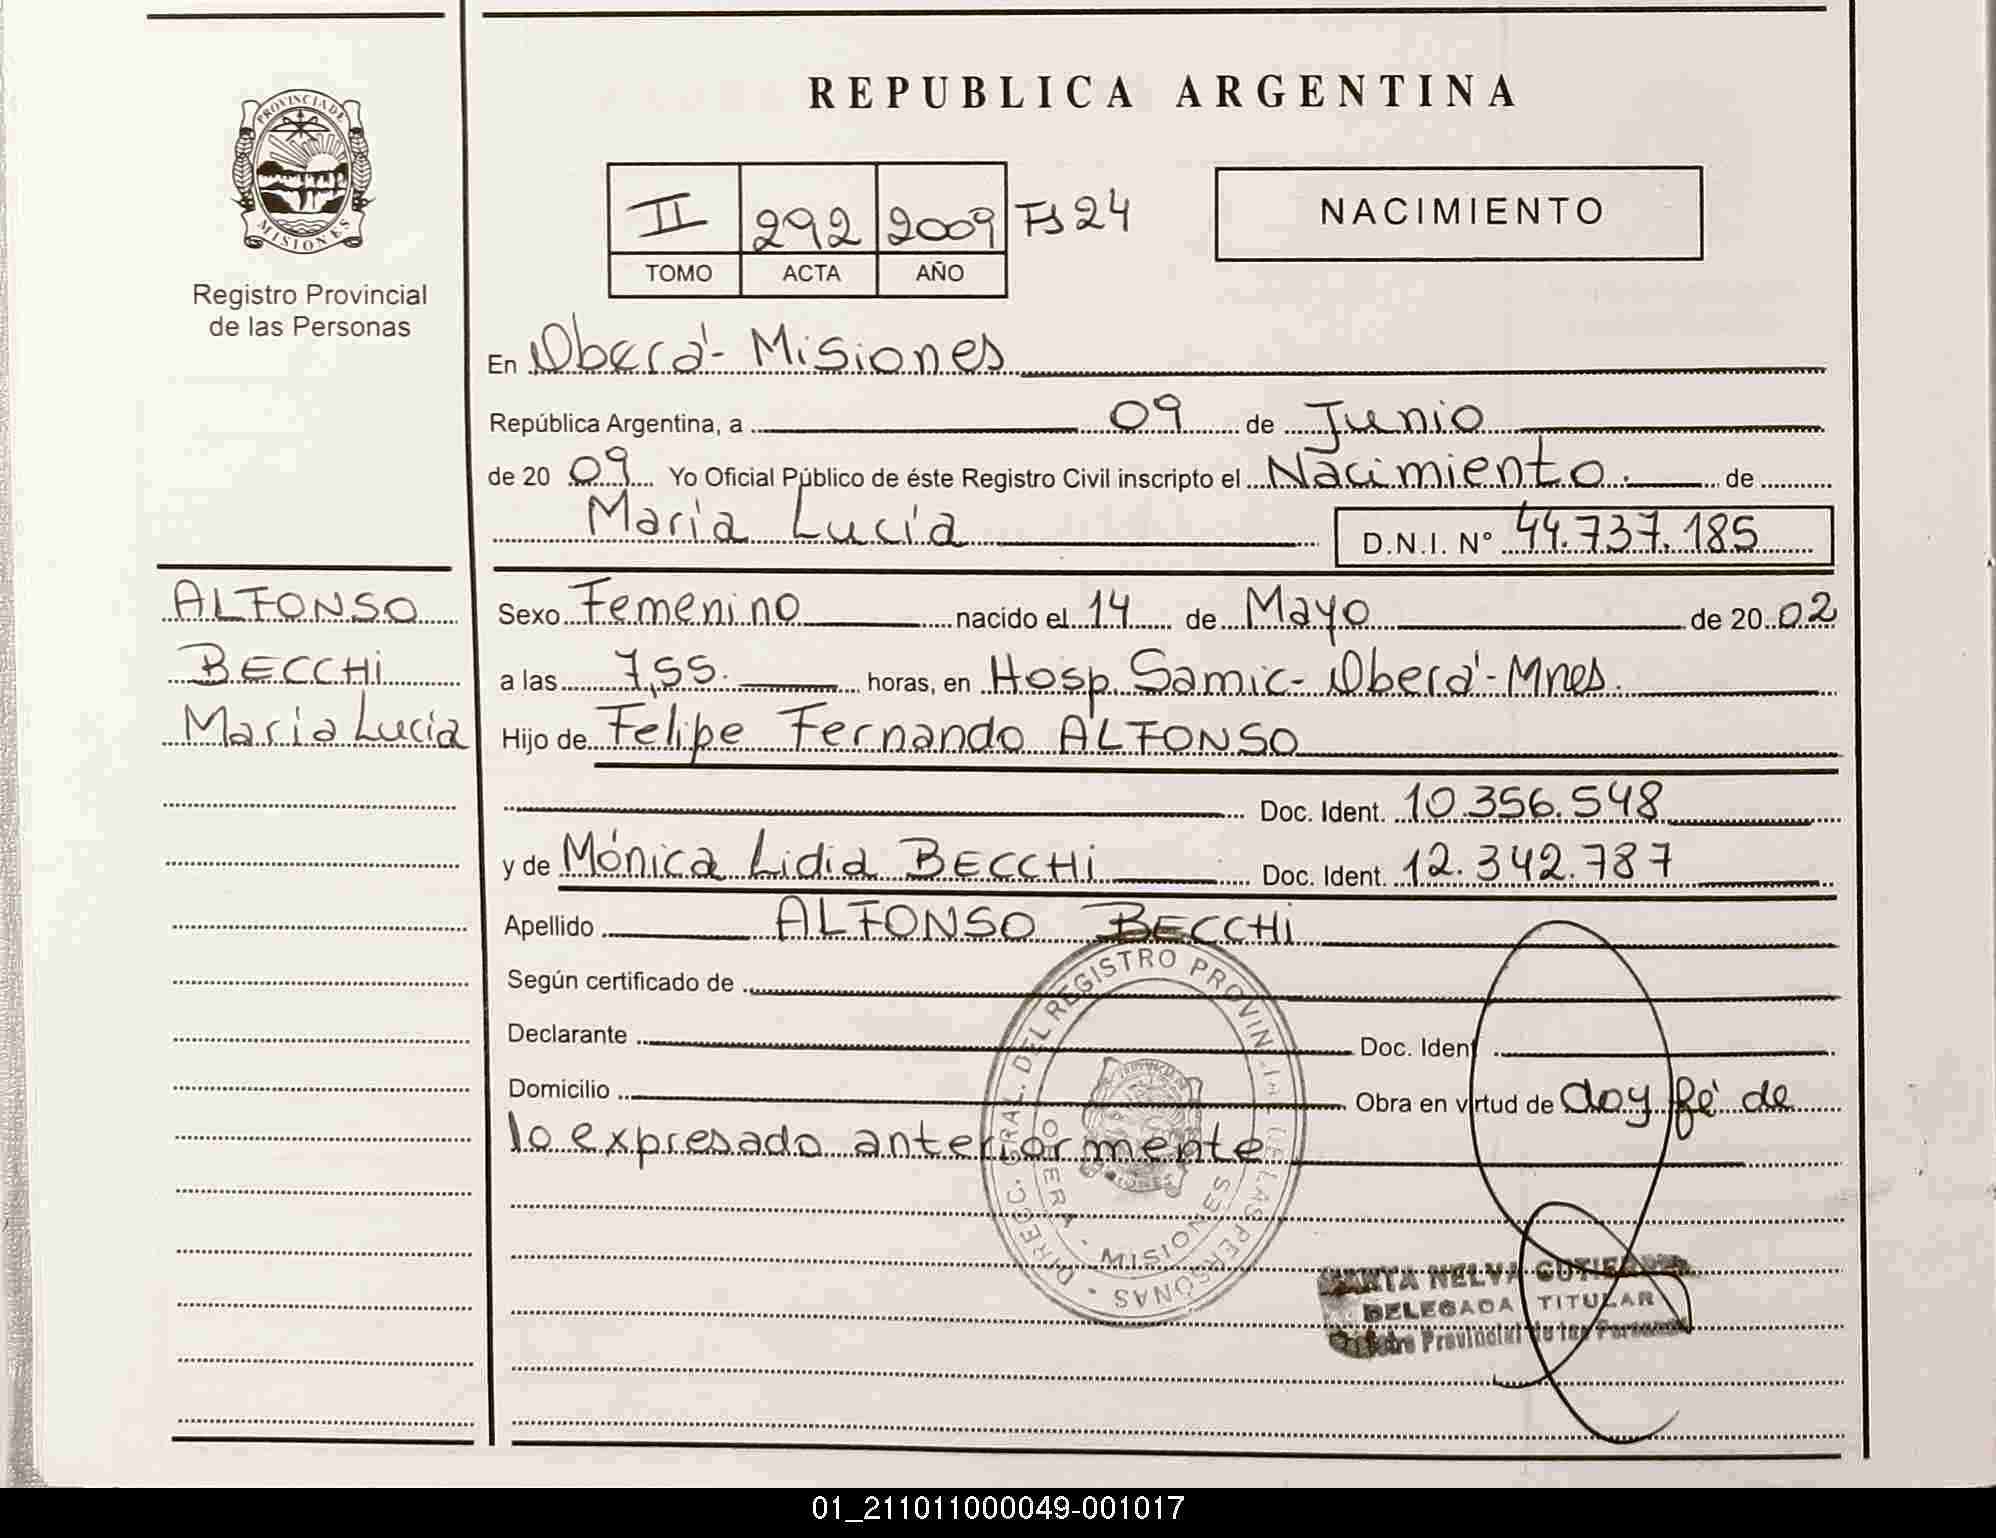 REPUBLICA ARGENTINA
PROVINCIA DE
MISIONES
Registro Provincial
de las Personas
II 292 2009 Fs 24
TOMO ACTA AÑO
NACIMIENTO
En Oberá - Misiones
República Argentina, a 09 de Junio
de 20 09 Yo Oficial Público de éste Registro Civil inscripto el Nacimiento. de
María Lucía D.N.I. N° 44.737.185
ALFONSO
BECCHi
María Lucía
Sexo Femenino nacido el 14 de Mayo de 20 02
a las 7,55. horas, en Hosp. Samic - Oberá - Mnes.
Hijo de Felipe Fernando ALFONSO
Doc. Ident. 10.356.548
y de Mónica Lidia BECCHi Doc. Ident. 12.342.787
Apellido ALFONSO BECCHi
Según certificado de
Declarante Doc. Ident
Domicilio Obra en virtud de doy fé de
lo expresado anteriormente
DIRECC. GRAL. DEL REGISTRO PROVINCIAL DE LAS PERSONAS
OBERA - MISIONES
NELVA
DELEGADA TITULAR
Provincial de las Personas
01_211011000049-001017